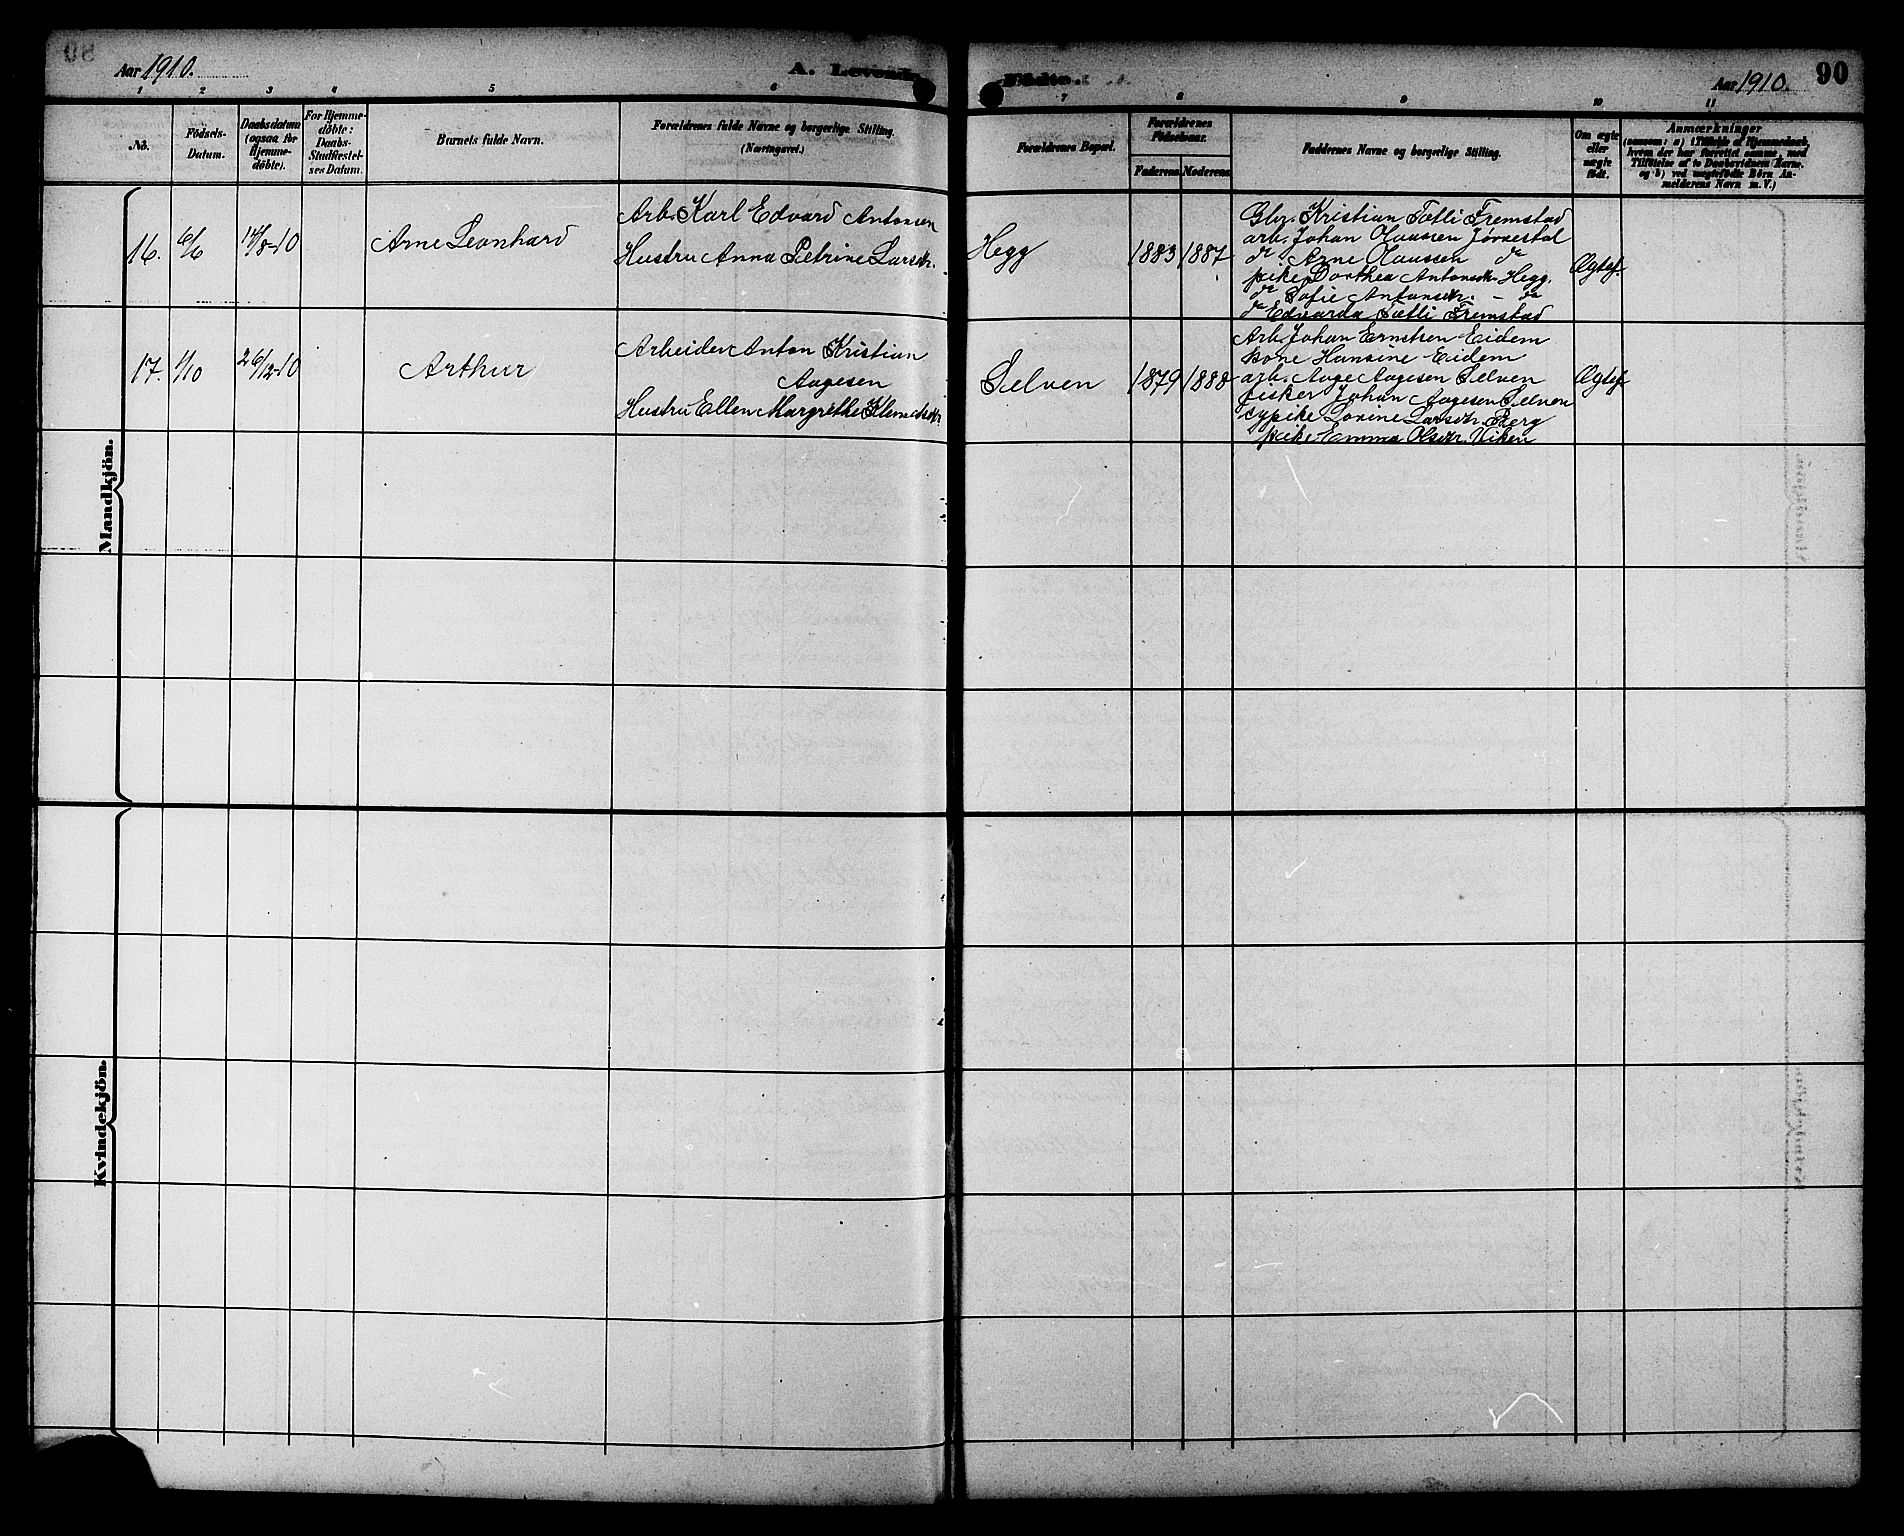 Aar 1910.
A. Levende
Fødte.
Aar 1910.
90
1 2 3 4 5 6 7 8 9 10 11
No.
Födsels-
Datum.
Daabsdatum
(ogsaa for
Hjemme-
döbte).
For Hjemme-
döbte:
Daabs-
Stadfæstel-
ses Datum.
Barnets fulde Navn.
Forældrenes fulde Navne og borgerlige Stilling.
(Næringsvei.)
Forældrenes Bopæl.
Forældrenes
Födselsaar.
Faderens
Moderens
Faddernes Navne og borgerlige Stilling.
Om ægte
eller
uægte
födt.
Anmærkninger
Mandkjön.
16.
6/6
14/8-10
Arne Leonhard
Arb. Karl Edvard Antonsen
Hustru Anna Petrine Larsdtr.
Hegg
1883
1887
Gbr. Kristian Sætli Fremstad
arb. Johan Olaussen Jørnestal
do Arne Olaussen do
pike Dorthea Antonsdtr. Hegg.
do Sofie Antonsdtr. - do
do Edvarda Sætli Fremstad
Ægtef.
17.
1/10
26/12-10
Arthur
Arbeider Anton Kristian
Aagesen
Hustru Ellen Margrethe Klemetsdtr.
Selven
1879
1888
Arb. Johan Erntsen Eidem
kone Hansine Eidem
arb. Aage Aagesen Selven
fisker Johan Aagesen Selven
sypike Lovine Larsdtr. Berg
pike Emma Olsdtr. Viken
Ægtef.
Kvindekjön.